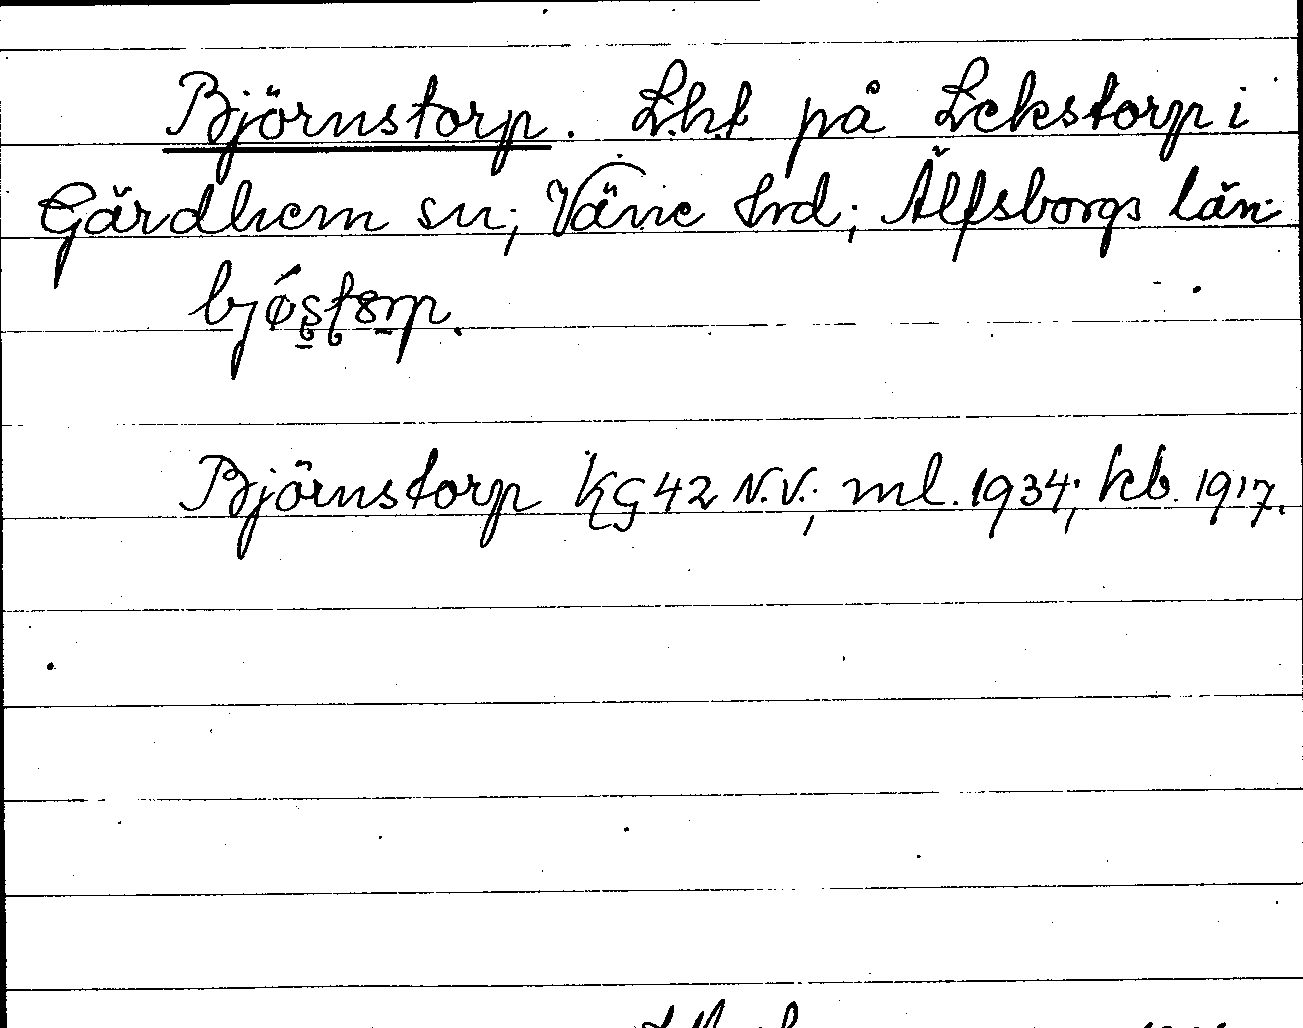 Björnstorp. L.h.t på Lekstorp i
Gärdhem sn; Väne hrd; Älfsborgs län.
bjøstorp.
Björnstorp KG42 N.V.; ml. 1934; kb. 1917.